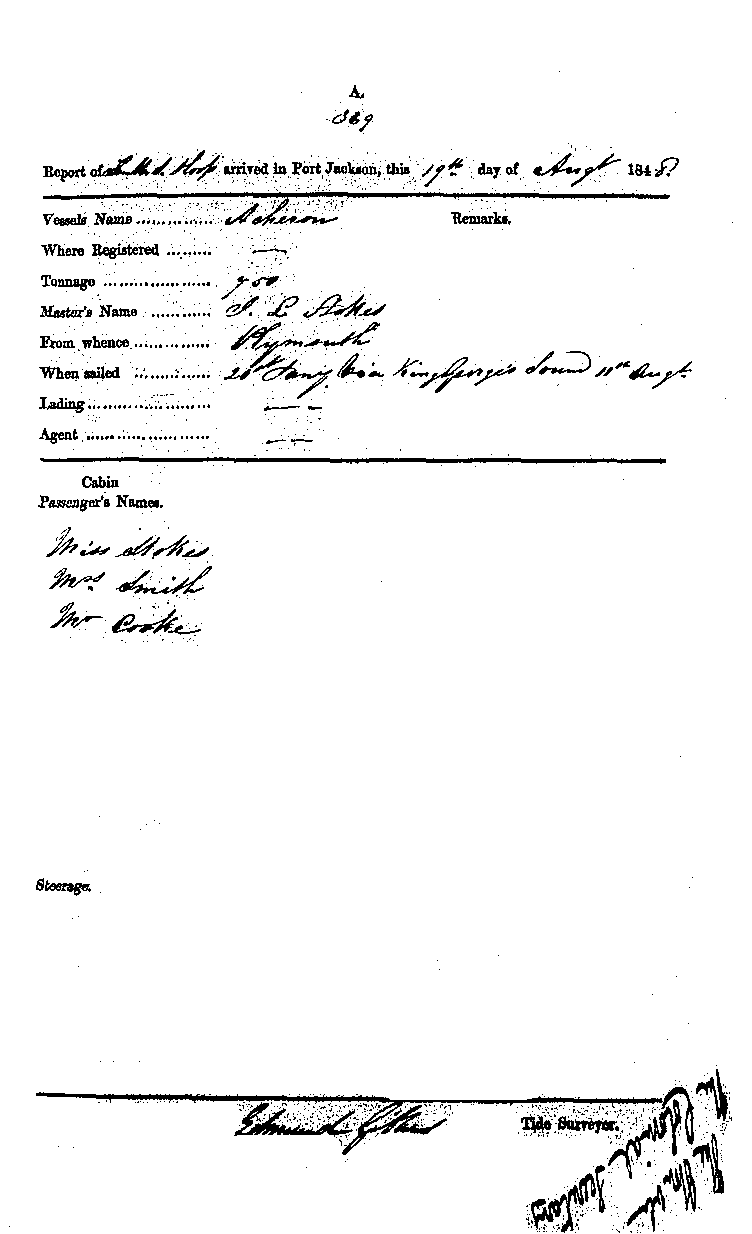 A.
369
Report of H.M.S. Sloop arrived in Port Jackson, this 19th day of Augt 1848
Vessels Name ............... Acheron Remarks.
Where Registered ......... —
Tonnage ..................... 750
Master's Name ............ J. L. Stokes
From whence ............... Plymouth
When sailed ............... 20th Jany Via King George's Sound 11th Augt
Lading ........................ — –
Agent ........................ — —
Cabin
Passenger's Names.
Miss Stokes
Mrs Smith
Mr Cooke
Steerage.
Edmund Tide Surveyor.
The Honble
The Colonial Secretary